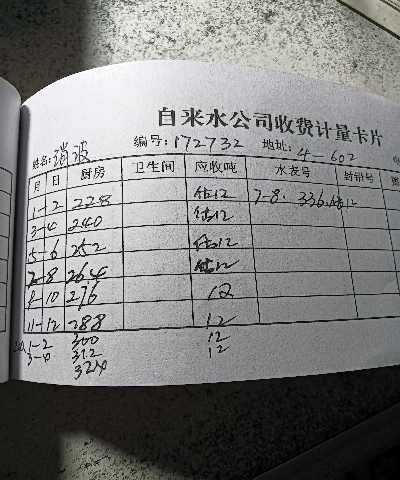 自来水公司收费计量卡片
姓名: 波 编号: 172732 地址: 4-602
月 日 厨房 卫生间 应收吨 水表号 封铅号
1-2 228 估12 7-8. 336.估12
3-4 240 估12
5-6 252 估12
7-8 264 估12
9-10 276 12
11-12 288 12
1-2 300 12
3-4 312 12
324